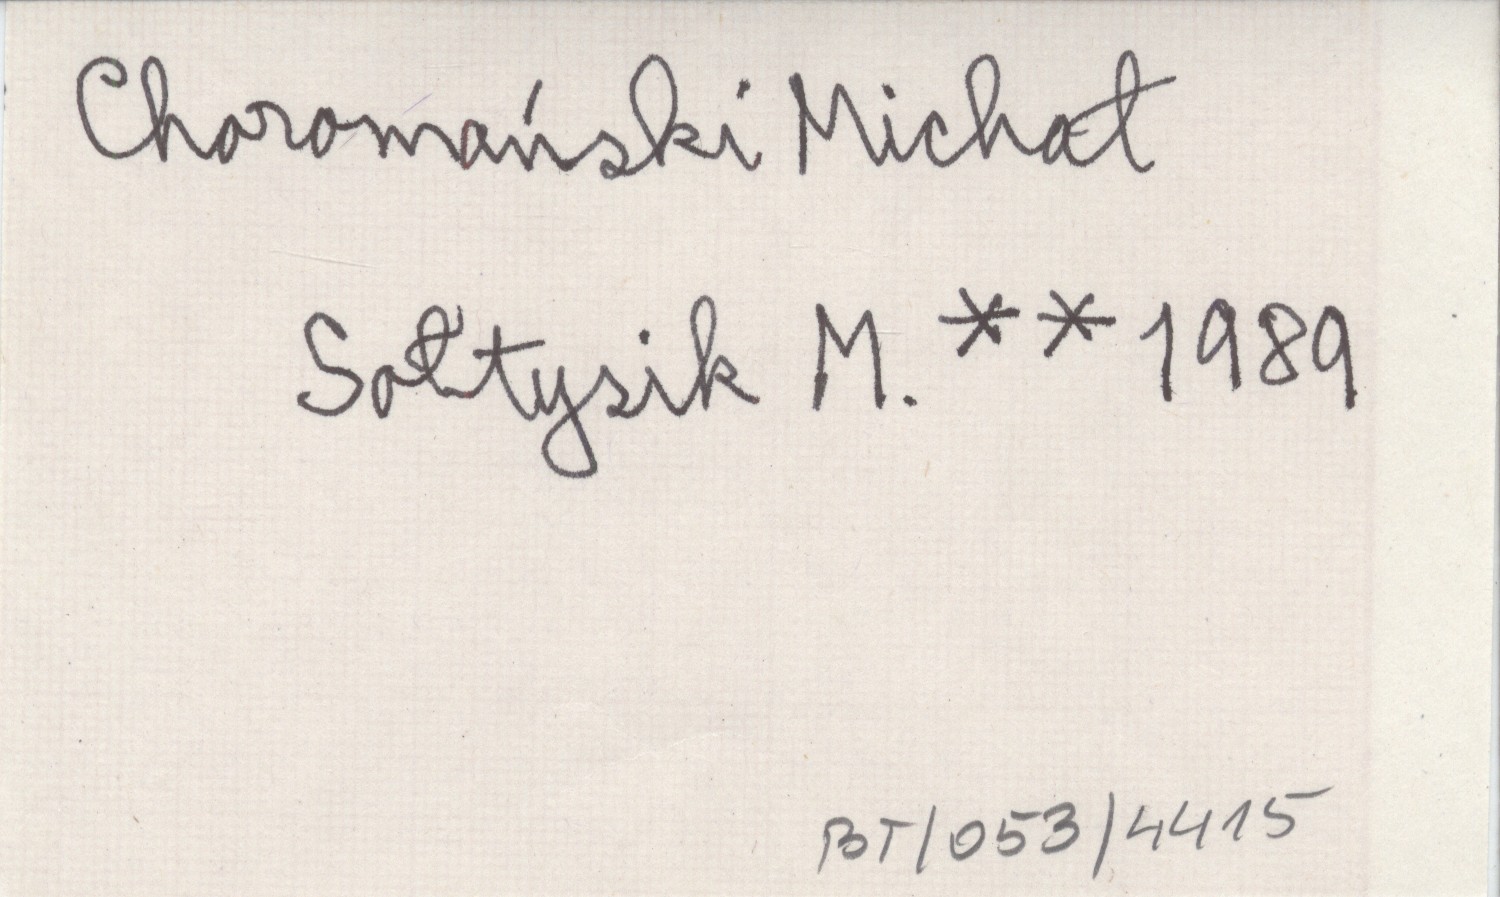 Choromański Michał
Sołtysik M. ** 1989
BT/053/4415